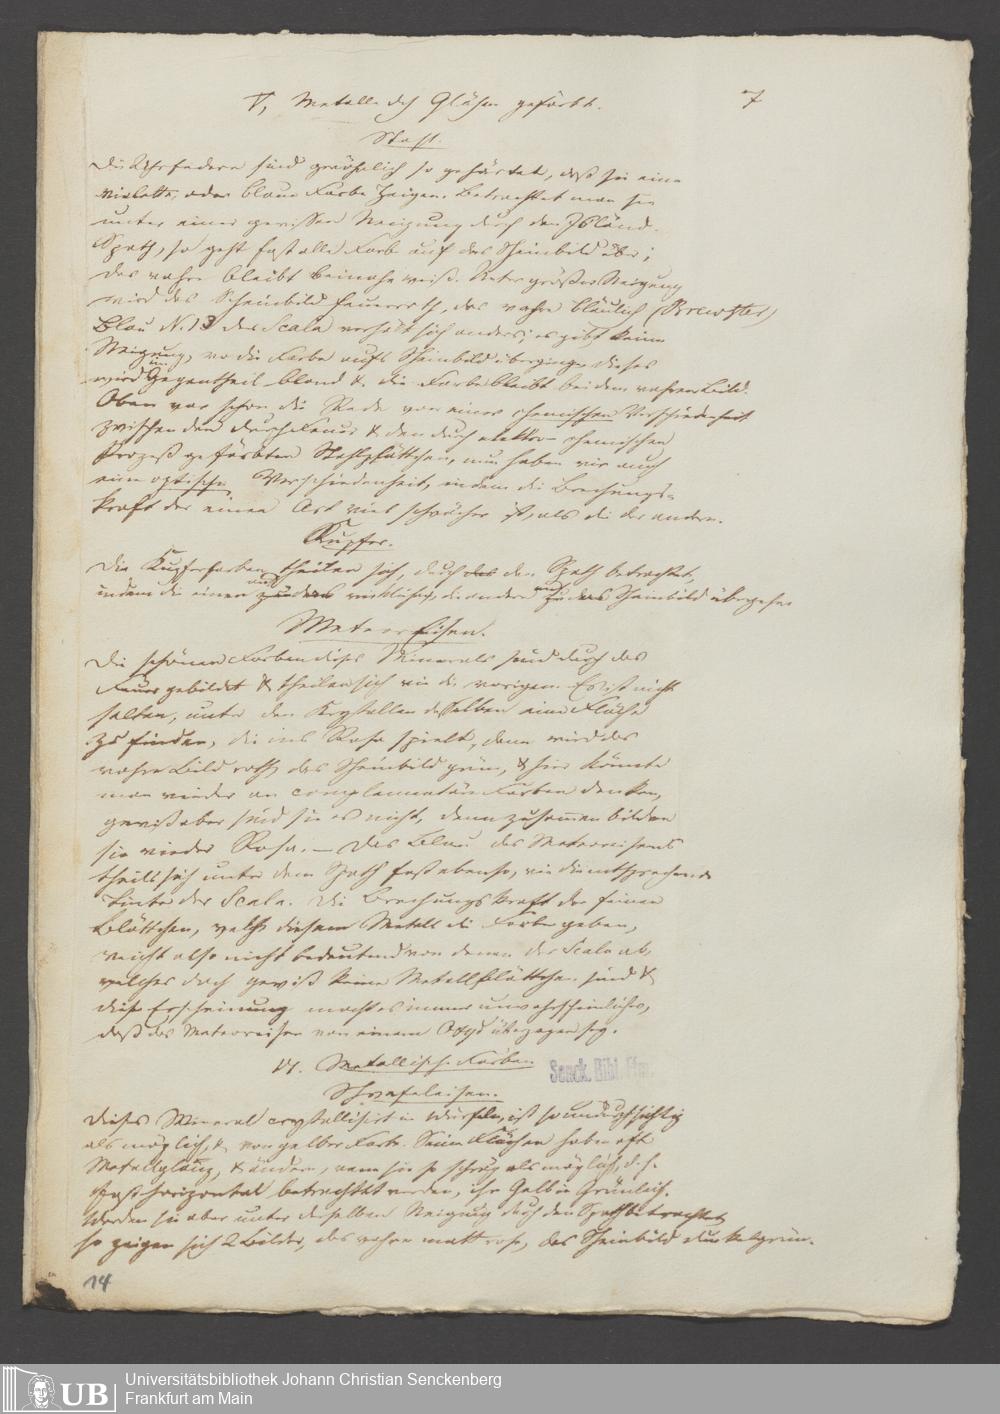 V, Metalle deh Glühen gefärbt. 7
Stahl.
Die Uhrfedern sind gewöhnlich so gehärtet, daß sie eine
violette, oder blaue Farbe zeigen. Betrachtet man sie
unter einer gewissen Neigung durch den Isländ.
Spath, so geht fast alle Farbe auf das Scheinbild über;
das wahre bleibt beinahe weiß. Unter größrer Neigung
wird das Scheinbild feuerroth, das wahre bläulich (Brewster)
Blau N. 13 der Scala verhält sich anders; es gibt keine
Neigung, wo die Farbe aufs Scheinbild überginge, dieses
wird im Gegentheil blond & die Farbe bleibt bei dem wahren Bild.
Oben war schon die Rede von einer chemischen Verschiedenheit
zwischen den durchs Feuer & den durch elektro-chemischen
Prozeß gefärbten Stahlplättchen, nun haben wir auch
eine optische Verschiedenheit, indem die Brechungs-
kraft der einen Art viel schwächer ist, als die der andern.
Kupfer.
Die Kupferfarben theilen sich, durch das den Spath betrachtet,
indem die einen auf zu das wirkliche, die andern auf zu das Scheinbild übergehen
MeteorEisen.
Die schönen Farben dieses Minerals sind durch das
Feuer gebildet & theilen sich wie die vorigen. Es ist nicht
selten, unter den Krystallen desselben eine Fläche
zu finden, die ins Rosa spielt, dann wird das
wahre Bild roth, das Scheinbild grün, & hier könnte
man wieder an complementäre Farben denken,
gewiß aber sind sie es nicht, denn zusammen bilden
sie wieder Rosa. — Das Blau des Meteoreisens
theilt sich unter dem Spath fast ebenso, wie die entsprechende
Tinte der Scala. Die Brechungskraft der feinen
Blättchen, welche diesem Metall die Farbe geben,
weicht also nicht bedeutend von denen der Scala ab,
welches doch gewiß keine Metallblättchen sind &
diese Erscheinung macht es immer unwahrscheinlicher,
daß das Meteoreisen von einem Oxyd überzogen sey.
VI. Metallische Farben
Schwefeleisen.
Senck. Bibl. Ffm.
Dieses Mineral crystallisirt in Würfeln, ist so undurchsichtig
als möglich, & von gelber Farbe. Seine Flächen haben oft
Metallglanz, & ändern, wenn sie so schräg als möglich, d. h.
fast horizontal betrachtet werden, ihr Gelb in Grünlich.
Werden sie aber unter derselben Neigung durch den Spath betrachtet
so zeigen sich 2 Bilder, das wahre matt rosa, das Scheinbild dunkelgrün.
14
UB
Universitätsbibliothek Johann Christian Senckenberg
Frankfurt am Main